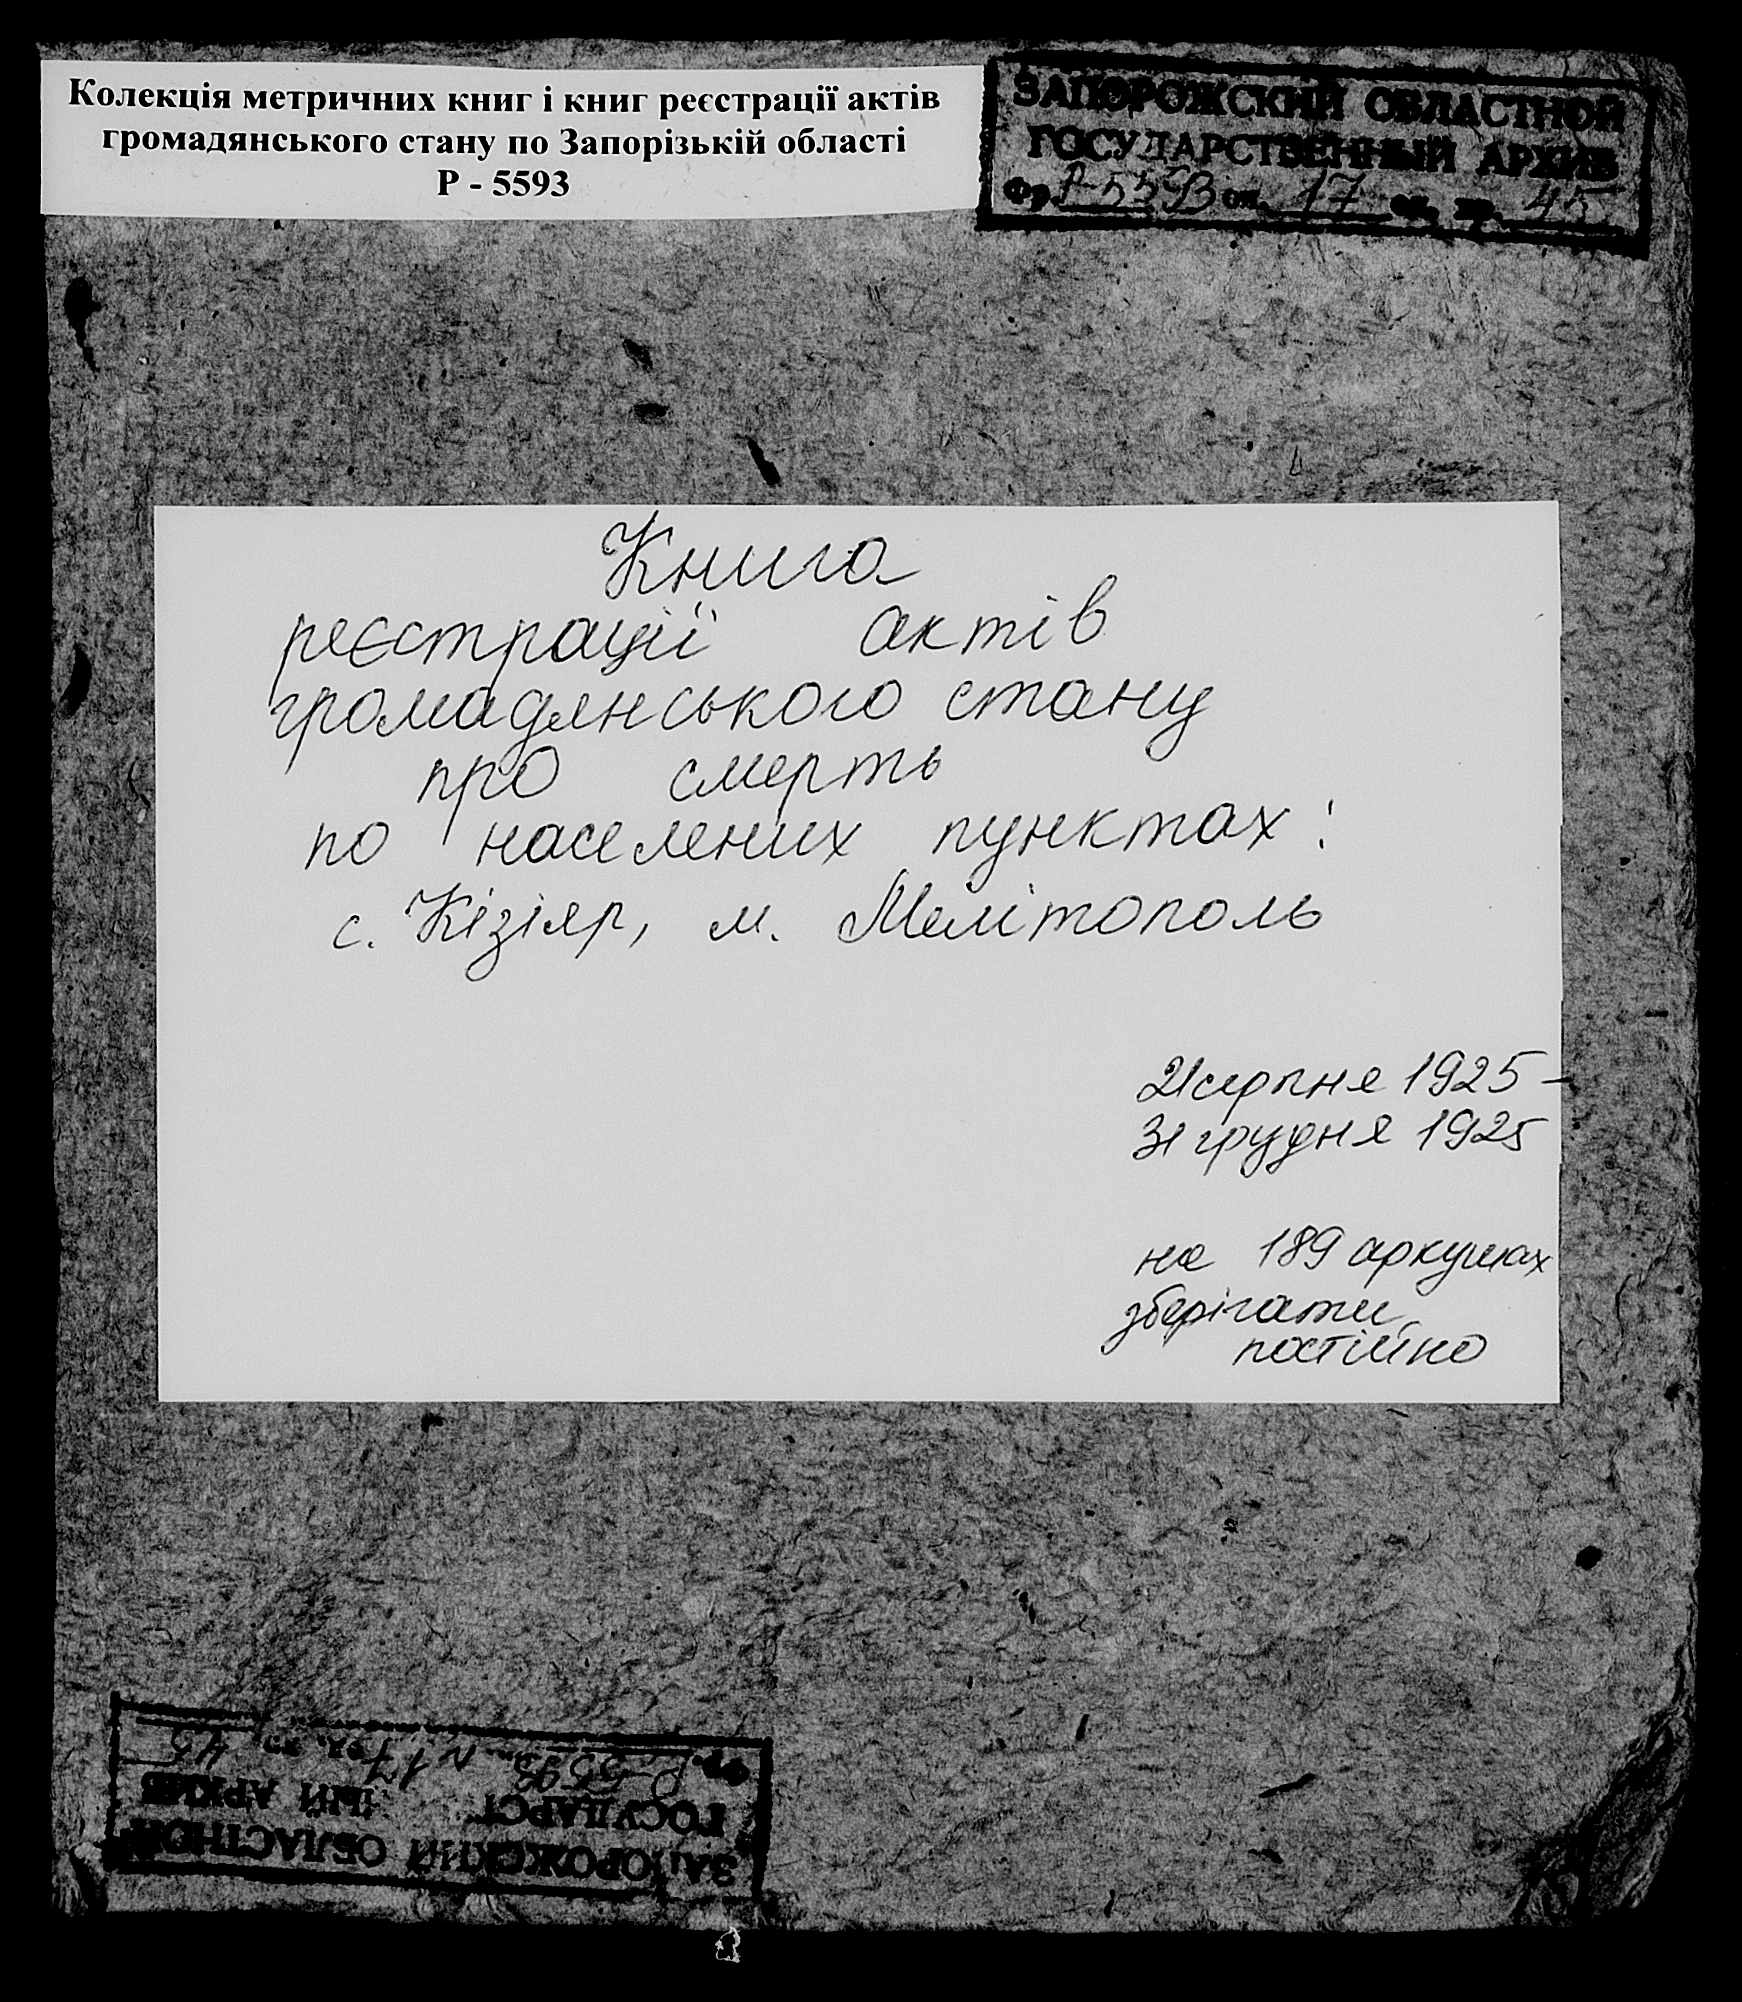 Колекція метричних книг і книг реєстрації актів
громадянського стану по Запорізькій області
Р - 5593
ЗАПОРОЖСКИЙ ОБЛАСТНОЙ
ГОСУДАРСТВЕННЫЙ АРХИВ
Фр. Р-5593 оп. 17 ед. хр. 45
Книга
реєстрації актів
громадянського стану
про смерть
по населених пунктах:
с. Кізіяр, м. Мелітополь
21 серпня 1925 –
31 грудня 1925
на 189 аркушах
зберігати
постійно
ЗАПОРОЖСКИЙ ОБЛАСТНОЙ
ГОСУДАРСТ ЫЙ АРХИВ
Фр. Р-5593 оп. N 17 ед. хр. 45